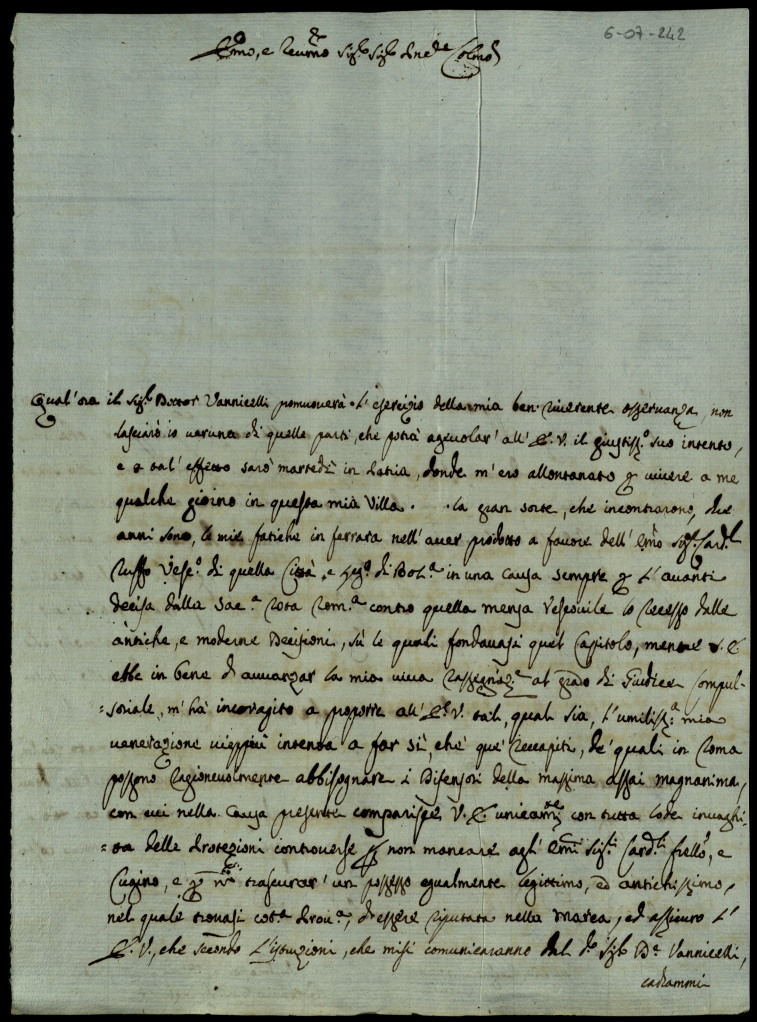 6-07-242
Emo, e Reumo Sigr Sigr Pne Colmo
Qual'ora il Sigr Dottor Vannicelli promuoverà l'esercizio della mia ben riverente osservanza, non
lasciarò io veruna di quelle parti, che potrà agevolar' all'E. V. il giustissº suo intento,
e a tal' effetto sarò martedì in Patria, donde m'ero allontanato p vivere a me
qualche giorno in questa mia Villa. La gran sorte, che incontrarono, due
anni sono, le mie fatiche in ferrara nell'aver prodotto a favore dell'Emo Sigr Cardl
Ruffo Vescº di quella Città, e Legº di Bolª in una Causa sempre p l'avanti
decisa dalla Sacª Rota Romª contro quella mensa Vescovile lo recesso dalle
antiche, e moderne Decisioni, sù le quali fondavasi quel Capitolo, mentre S. E.
ebbe in bene d'avvanzar la mia viva rassegnazne al grado di Giudice Compul-
=soriale, m'hà incoragito a proporre all'E. V. tal, qual sia, l'umilissª mia
venerazione vieppiù intenta a far sì, che que' Recapiti, de' quali in Roma
possono ragionevolmente abbisognare i Difensori della massima assai magnanima,
con cui nella Causa presente comparisce V. E. unicamte con tutta lode invaghi-
=ta delle Protezioni controverse p non mancare agl' Emi Sigri Cardli frello, e
Cugino, e p trascurar' un possesso egualmente legittimo, ed antichissimo,
nel quale trovasi cotª Provª, d'essere riputata nella Marca, ed assicuro l'
E. V., che secondo l'istruzioni, che misi comunicaranno dal dº Sigr Dr Vannicelli,
cadrammi